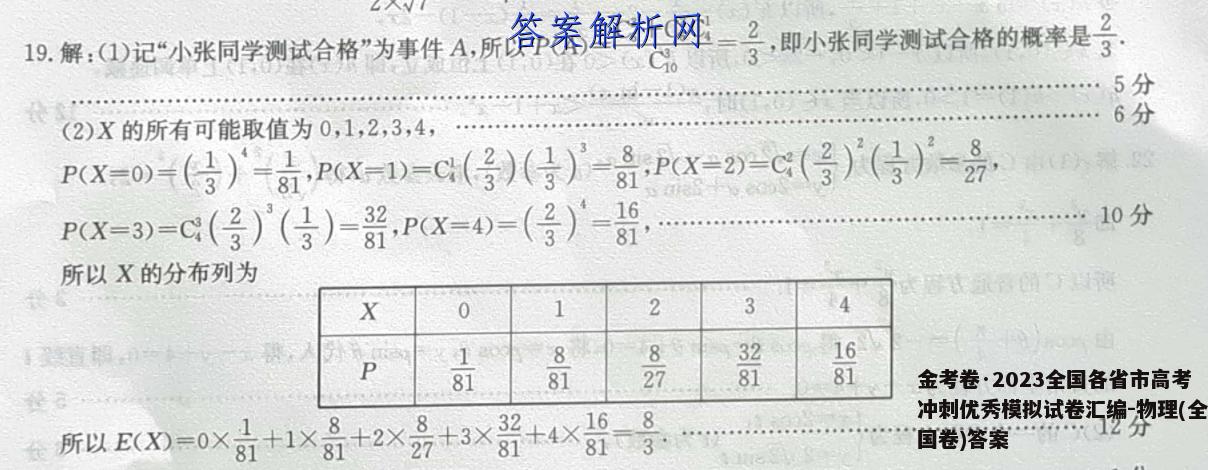 2×√7
答案解析网
19.解:(1)记“小张同学测试合格”为事件 A,所以 P(A) C₁₀³ = 2/3,即小张同学测试合格的概率是 2/3.
………… 5 分
(2)X 的所有可能取值为 0,1,2,3,4, ………… 6 分
P(X=0)=(1/3)⁴=1/81,P(X=1)=C₄¹(2/3)(1/3)³=8/81,P(X=2)=C₄²(2/3)²(1/3)²=8/27,
P(X=3)=C₄³(2/3)³(1/3)=32/81,P(X=4)=(2/3)⁴=16/81, ………… 10 分
所以 X 的分布列为
X 0 1 2 3 4
P 1/81 8/81 8/27 32/81 16/81
所以 E(X)=0×1/81+1×8/81+2×8/27+3×32/81+4×16/81=8/3. ………… 12 分
金考卷·2023全国各省市高考
冲刺优秀模拟试卷汇编-物理(全
国卷)答案